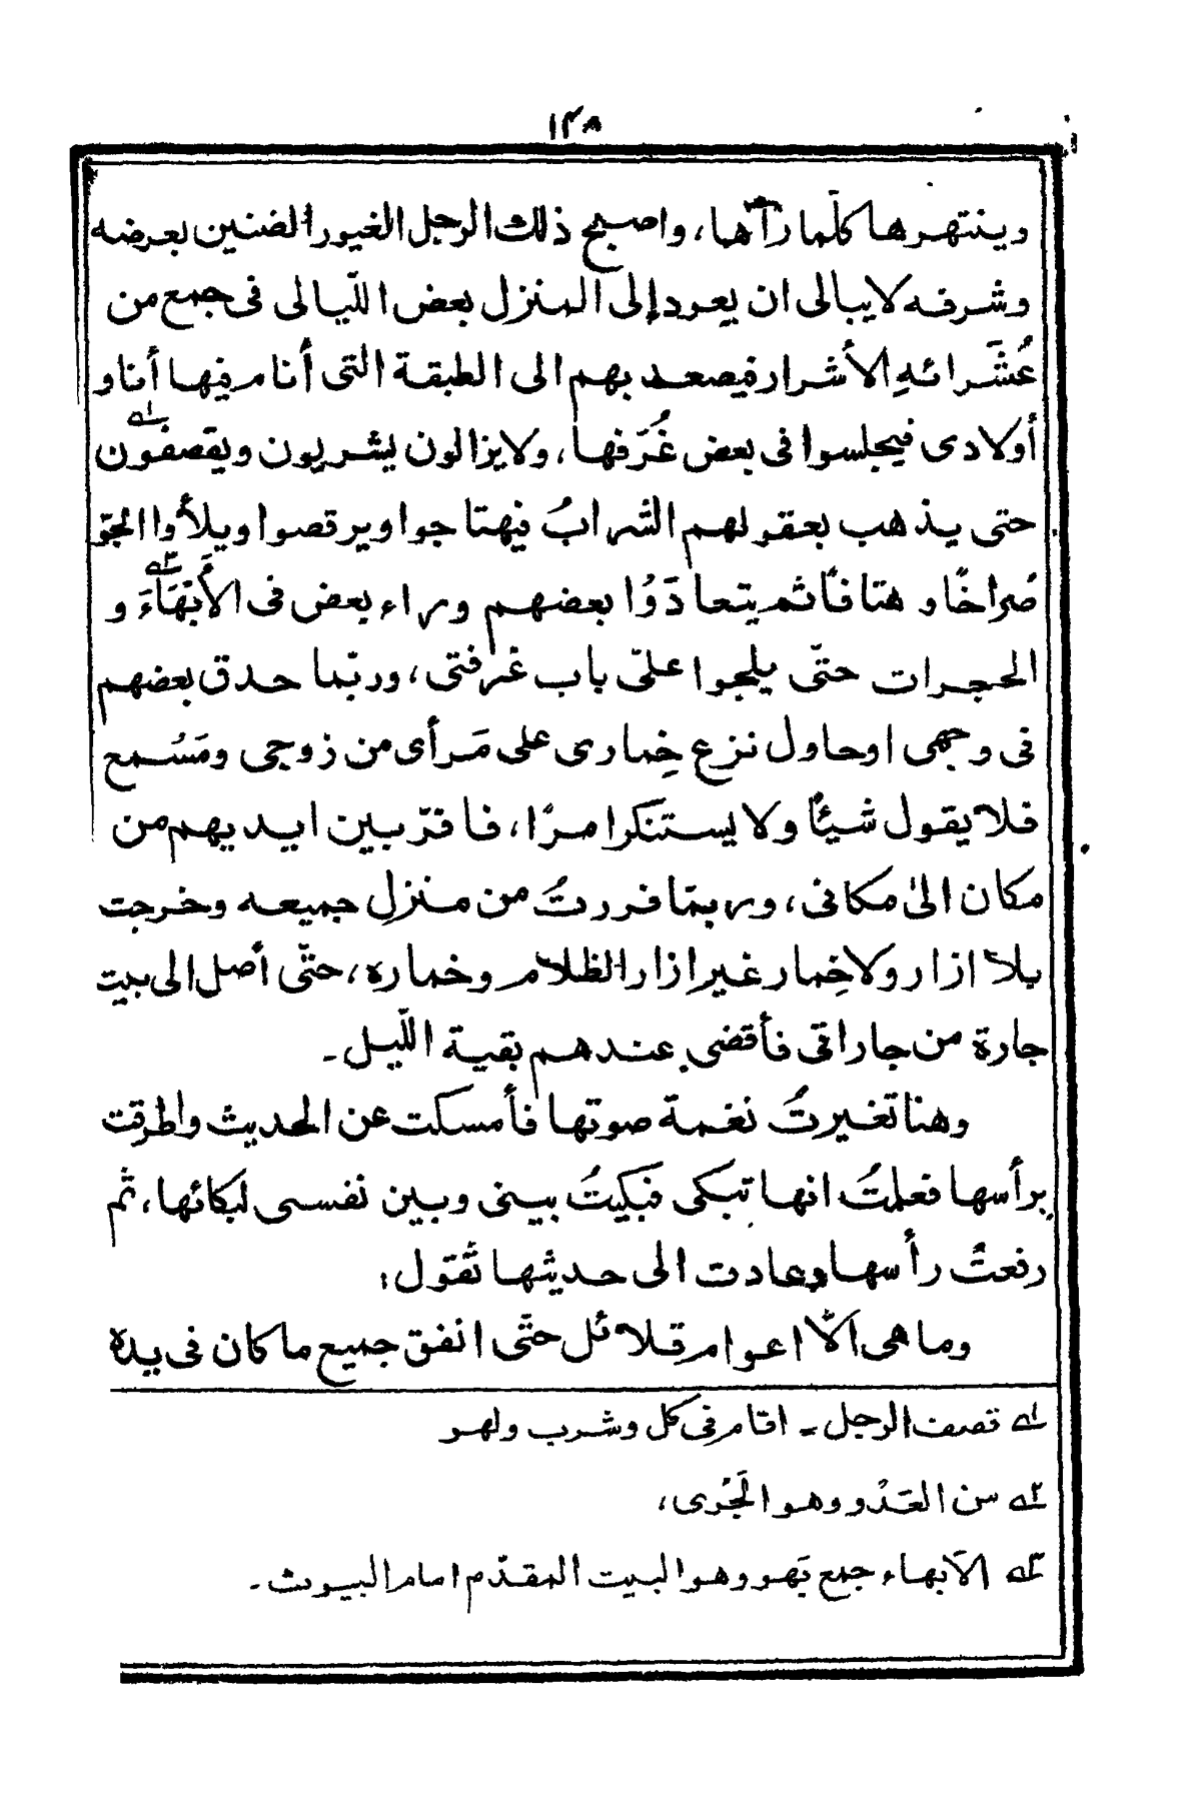 ١٤٨
وينتهرها كلّما رآها، واصبح ذلك الرجل الغيور الضنين بعرضه
وشرفه لا يبالى ان يعود إلى المنزل بعض اللّيالى فى جمع من
عُشَرائهِ الأشرار فيصعد بهم الى الطبقة التى أنام فيها أنا و
أولادى فيجلسوا فى بعض غُرَفها، ولا يزالون يشربون ويقصفون ١ـه
حتى يذهب بعقولهم الشرابُ فيهتاجوا ويرقصوا ويملأوا الجوّ
صُراخًا و هتافًا ثم يتعادَوُا بعضهم وراء بعض فى الأَبْهَاءَ ٣ـه و
الحجرات حتّى يلجوا علىّ باب غرفتى، وربّما حدق بعضهم
فى وجهى او حاول نزع خِمارى على مَرأى من زوجى ومَسْمع
فلا يقول شيئًا ولا يستنكر امرًا، فافرّ بين ايديهم من
مكان الىٰ مكانى، وربمّا فررتُ من منزلِ جميعه وخرجت
بلا ازار ولا خِمار غير ازار الظلام وخماره، حتّى أصل الى بيت
جارة من جاراتى فأقضى عندهم بقية اللّيل۔
وهنا تغيرتُ نغمة صوتها فأمسكت عن الحديث واطرقت
برأسها فعلمتُ انها تبكى فبكيتُ بينى وبين نفسى لبكائها، ثم
رفعتُ رأسها وعادت الى حديثها تقول:
وما هى الّا اعوام قلائل حتّى انفق جميع ما كان فى يده
١ـه قصف الرجل ۔ اقام فى كل وشرب ولهو
٢ـه من العَدْو وهو الجَرى،
٣ـه الآبهاء جمع بَهو وهو البيت المقدّم امام البيوت۔